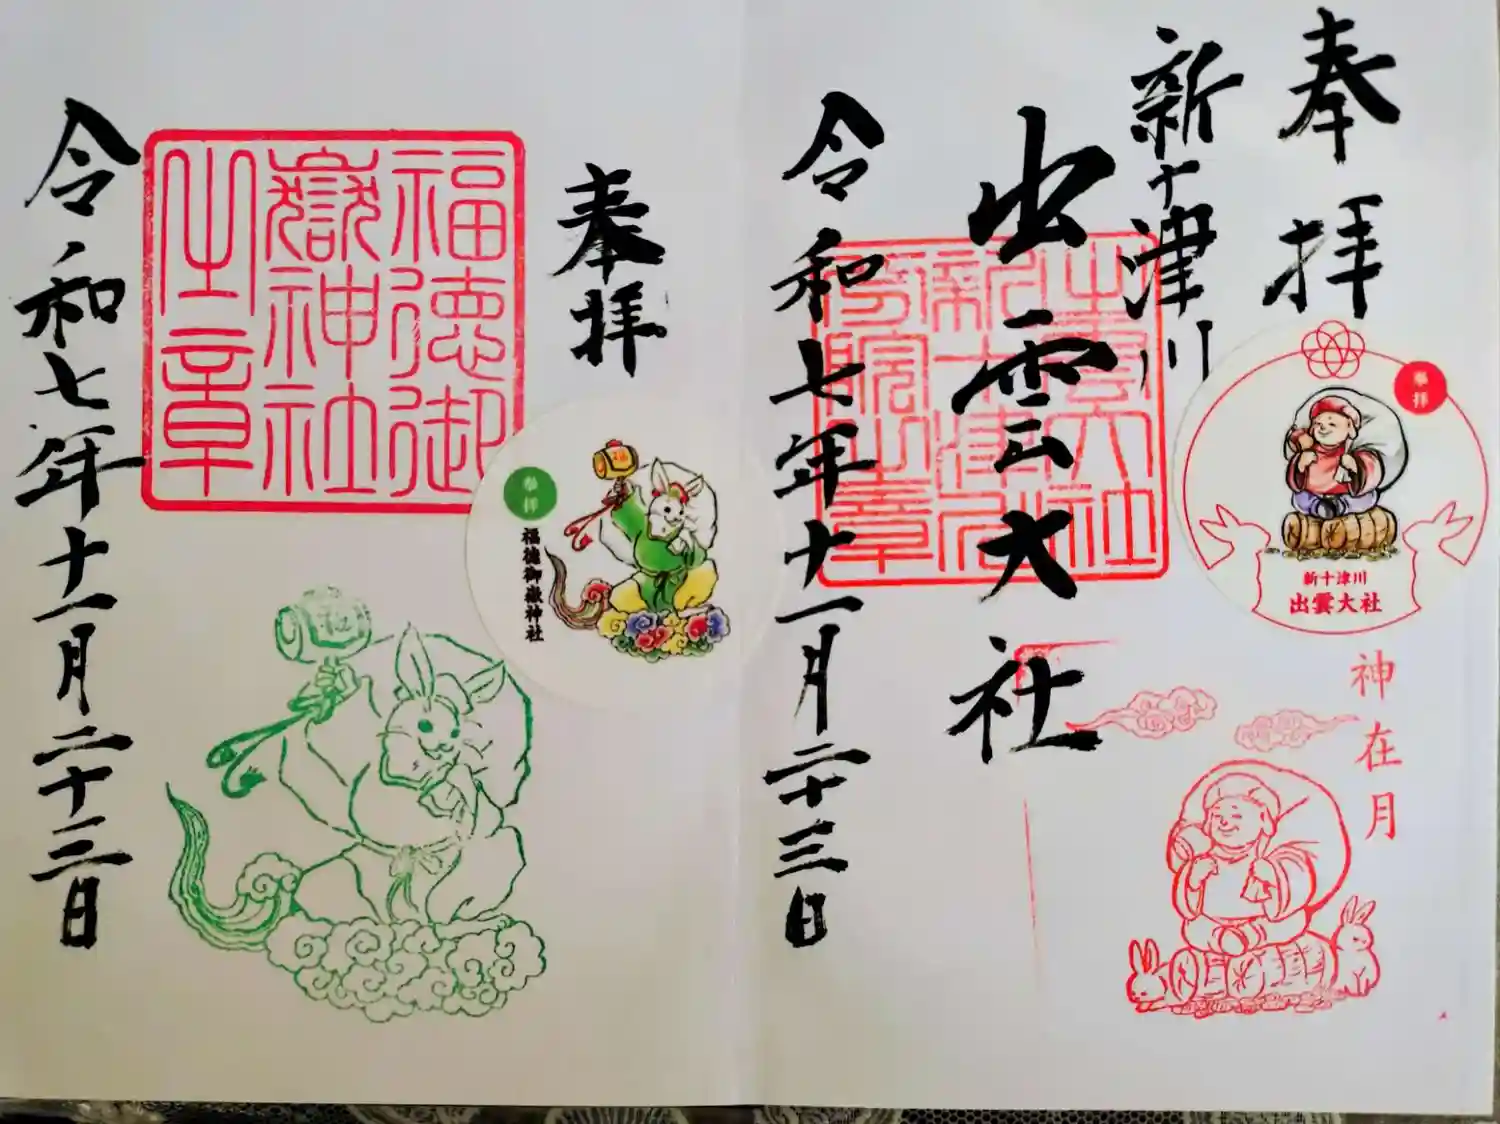 奉拝
新十津川
出雲大社
令和七年十一月二十三日
出雲大社
新十津川
分院之章
奉拝
新十津川
出雲大社
神在月
奉拝
福徳御
嶽神社
之章
令和七年十一月二十三日
奉拝
福徳御嶽神社
福